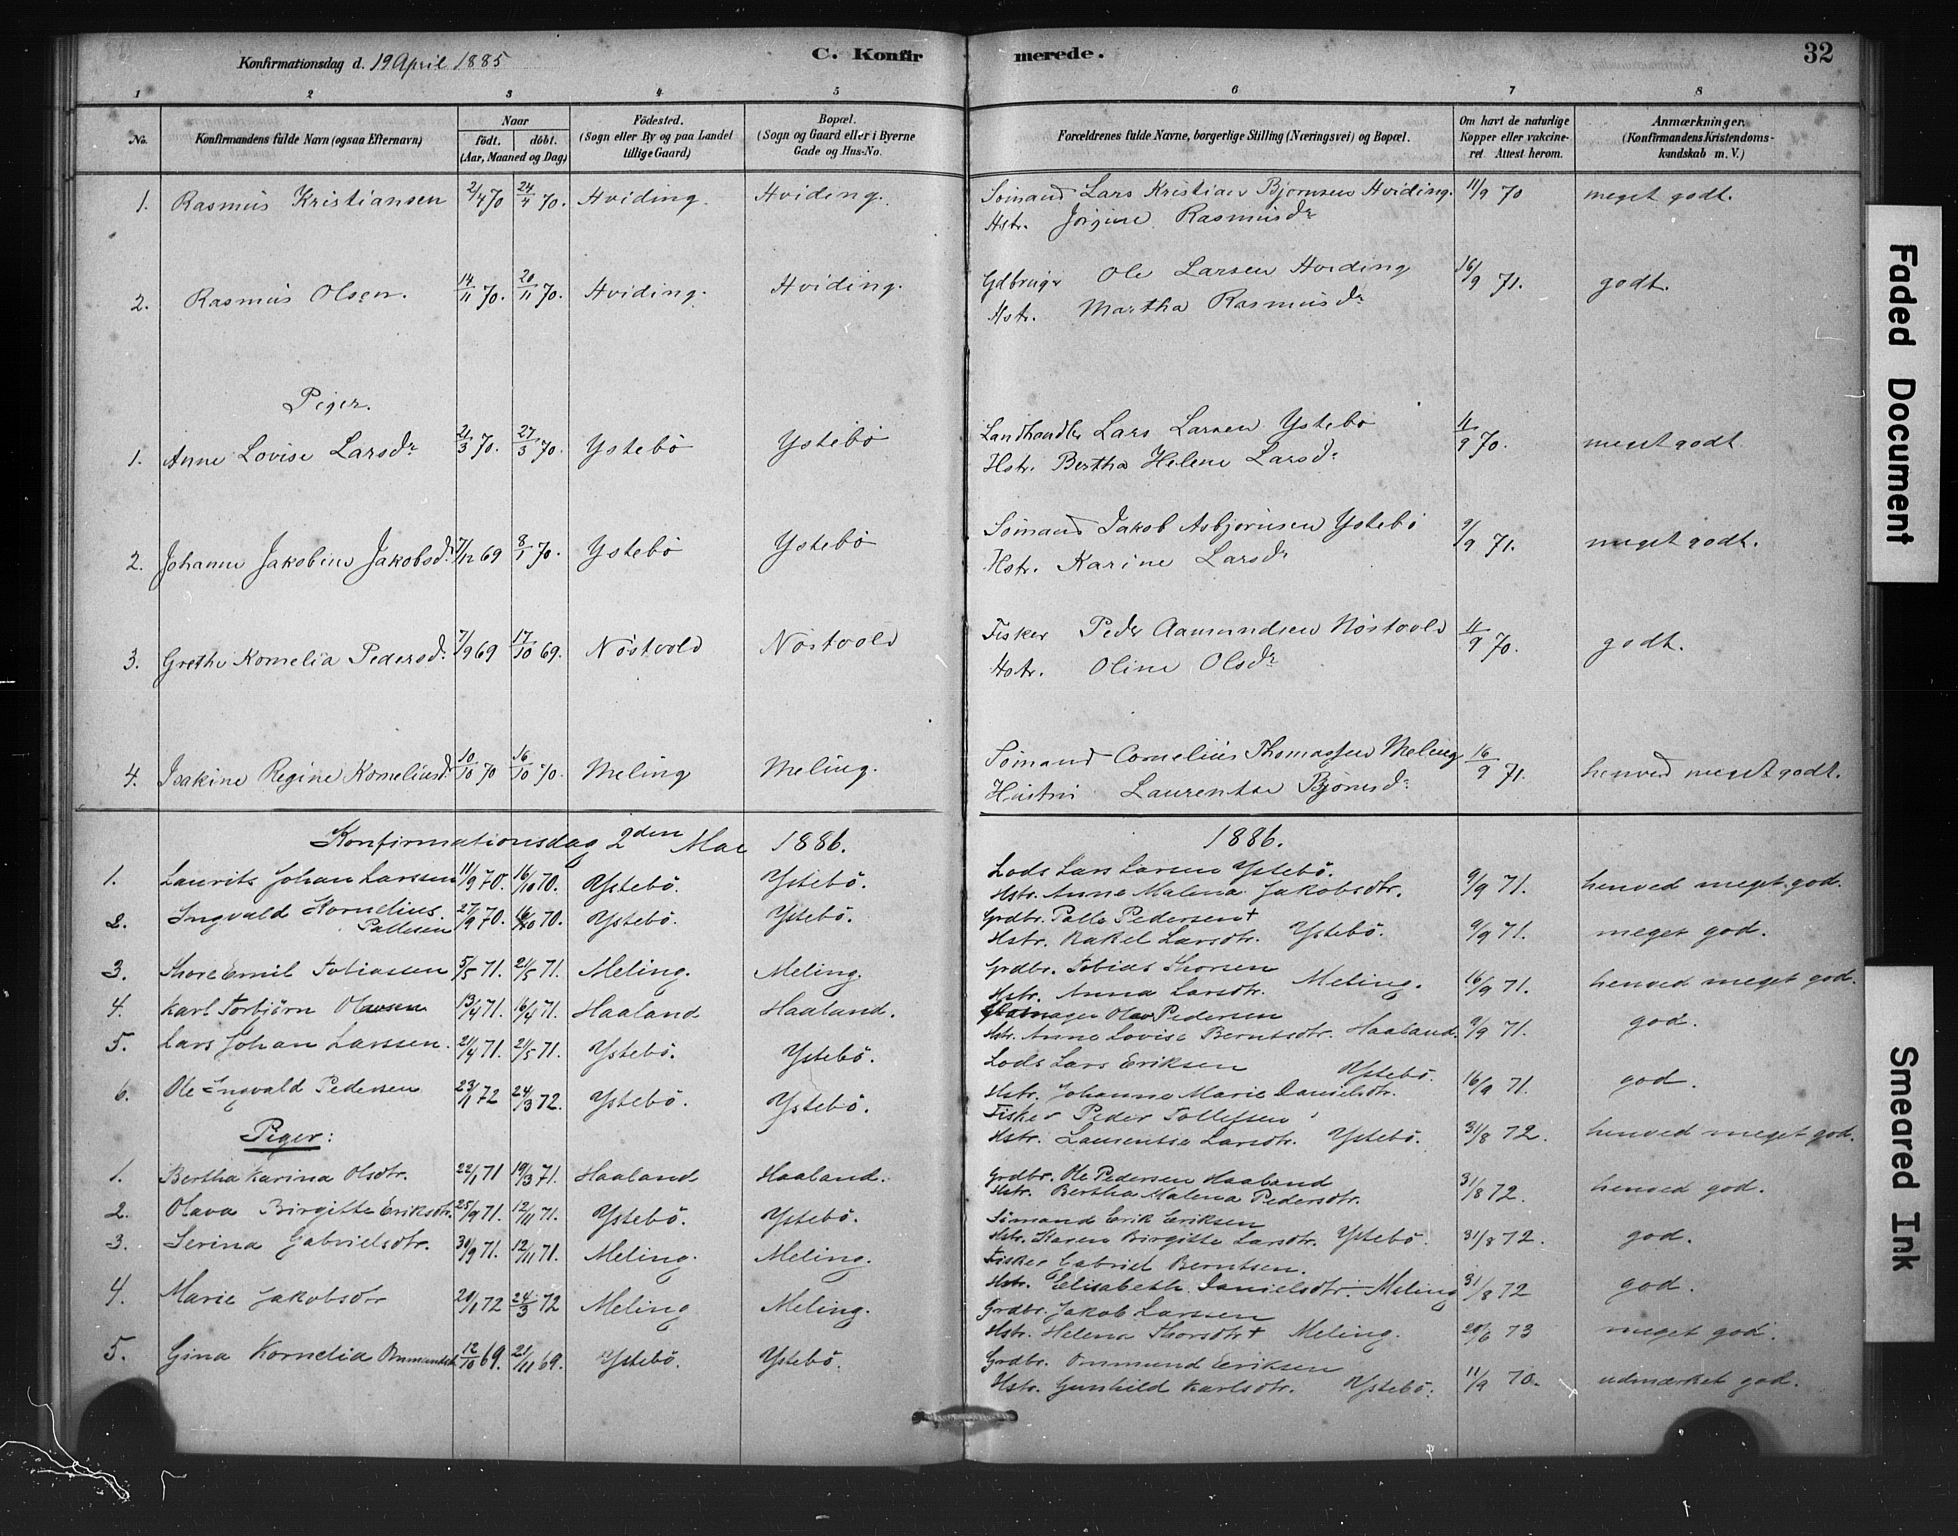 Konfirmationsdag d. 19 April 1885
C. Konfirmerede.
32
1 2 3 4 5 6 7 8
No. Konfirmandens fulde Navn (ogsaa Efternavn) Naar födt. döbt. (Aar, Maaned og Dag) Födested. (Sogn eller By og paa Landet tillige Gaard) Bopæl. (Sogn og Gaard eller i Byerne Gade og Hus-No. Forældrenes fulde Navne, borgerlige Stilling (Næringsvei) og Bopæl. Om havt de naturlige Kopper eller vakcineret. Attest herom. Anmærkninger. (Konfirmandens Kristendomskundskab m. V.)
1. Rasmus Kristiansen 2/4 70 24/4 70. Hviding. Hviding. Sömand Lars Kristian Bjornsen Hviding. 11/9 70 meget godt.
Hstr. Jörgine Rasmusdr
2. Rasmus Olsen. 14/11 70. 20/11 70. Hviding. Hviding. Gdbruger Ole Larsen Hviding 16/9 71. godt.
Hstr. Martha Rasmusdr
Piger.
1. Anne Lovise Larsdr 21/3 70. 27/3 70. Ystebö Ystebö Landhandler Lars Larsen Ystebö 11/9 70. meget godt.
Hstr. Bertha Helene Larsdr
2. Johanne Jakobine Jakobsdr. 7/12 69 8/1 70. Ystebö Ystebö Sömand Jakob Asbjörnsen Ystebö 9/9 71. meget godt.
Hstr. Karine Larsdr
3. Grethe Kornelia Pedersd. 7/9 69 17/10 69. Nöstvold Nöstvold Fisker Peder Aamundsen Nöstvold 11/9 70. godt.
Hstr. Oline Olsdr
4. Isakine Regine Korneliusdr 10/10 70 16/10 70. Meling Meling. Sömand Cornelius Thomassen Meling 16/9 71. henved meget godt.
Hustru Laurentse Björnsdr
Konfirmationsdag 2den Mai 1886. 1886.
1. Laurits Johan Larssen 11/9 70. 16/10 70. Ystebö. Ystebö. Lods Lars Larsen Ystebö. 9/9 71. henved meget god.
Hstr. Anna Malena Jakobsdtr.
2. Ingvald Kornelius Pallesen 27/9 70. 16/10 70. Ystebö. Ystebö. Grdbr. Palle Pedersen† 9/9 71. meget god.
Hstr. Rakel Larsdtr. Ystebö.
3. Thore Emil Tobiassen 5/5 71. 21/5 71. Meling. Meling. Grdbr. Tobias Thorsen 16/9 71. henved meget god.
Hstr. Anna Larsdtr. Meling.
4. Karl Torbjörn Olavsen 13/4 71. 16/4 71. Haaland Haaland. Olav Pedersen 9/9 71. god.
Hstr. Anne Lovise Berntsdtr. Haaland.
5. Lars Johan Larssen. 21/4 71. 21/5 71. Ystebö. Ystebö. Lods Lars Eriksen Ystebö. 16/9 71. god.
Hstr. Johanne Marie Danielsdtr.
6. Ole Ingvald Pedersen 23/1 72 24/3 72. Ystebö. Ystebö. Fisker Peder Tollefsen 31/8 72. henved meget god.
Hstr. Laurentse Larsdtr. Ystebö.
Piger:
1. Bertha Karina Olsdtr. 22/1 71 19/3 71. Haaland Haaland. Grdbr. Ole Pedersen Haaland 31/8 72. henved god.
Hstr. Bertha Malena Pedersdtr.
2. Olava Birgitte Eriksdtr. 25/9 71. 12/11 71. Ystebö. Ystebö. Sömand Erik Eriksen 31/8 72. god.
Hstr. Karen Birgitte Larsdtr. Ystebö.
3. Serina Gabrielsdtr. 30/9 71. 12/11 71. Meling. Meling. Fisker Gabriel Berntsen. 31/8 72 god.
Hstr. Elisabeth Danielsdtr. Meling
4. Marie Jakobsdtr 20/1 72 24/3 72 Meling Meling. Grdbr. Jakob Larssen 20/6 73 meget god.
Hstr. Helena Thorsdtr† Meling.
5. Gina Kornelia Ommundsdt 12/10 69. 21/11 69. Ystebö. Ystebö. Grdbr. Ommund Eriksen 11/9 70. udmærket god.
Hstr. Gunhild Karlsdtr. Ystebö.
Faded Document
Smeared Ink